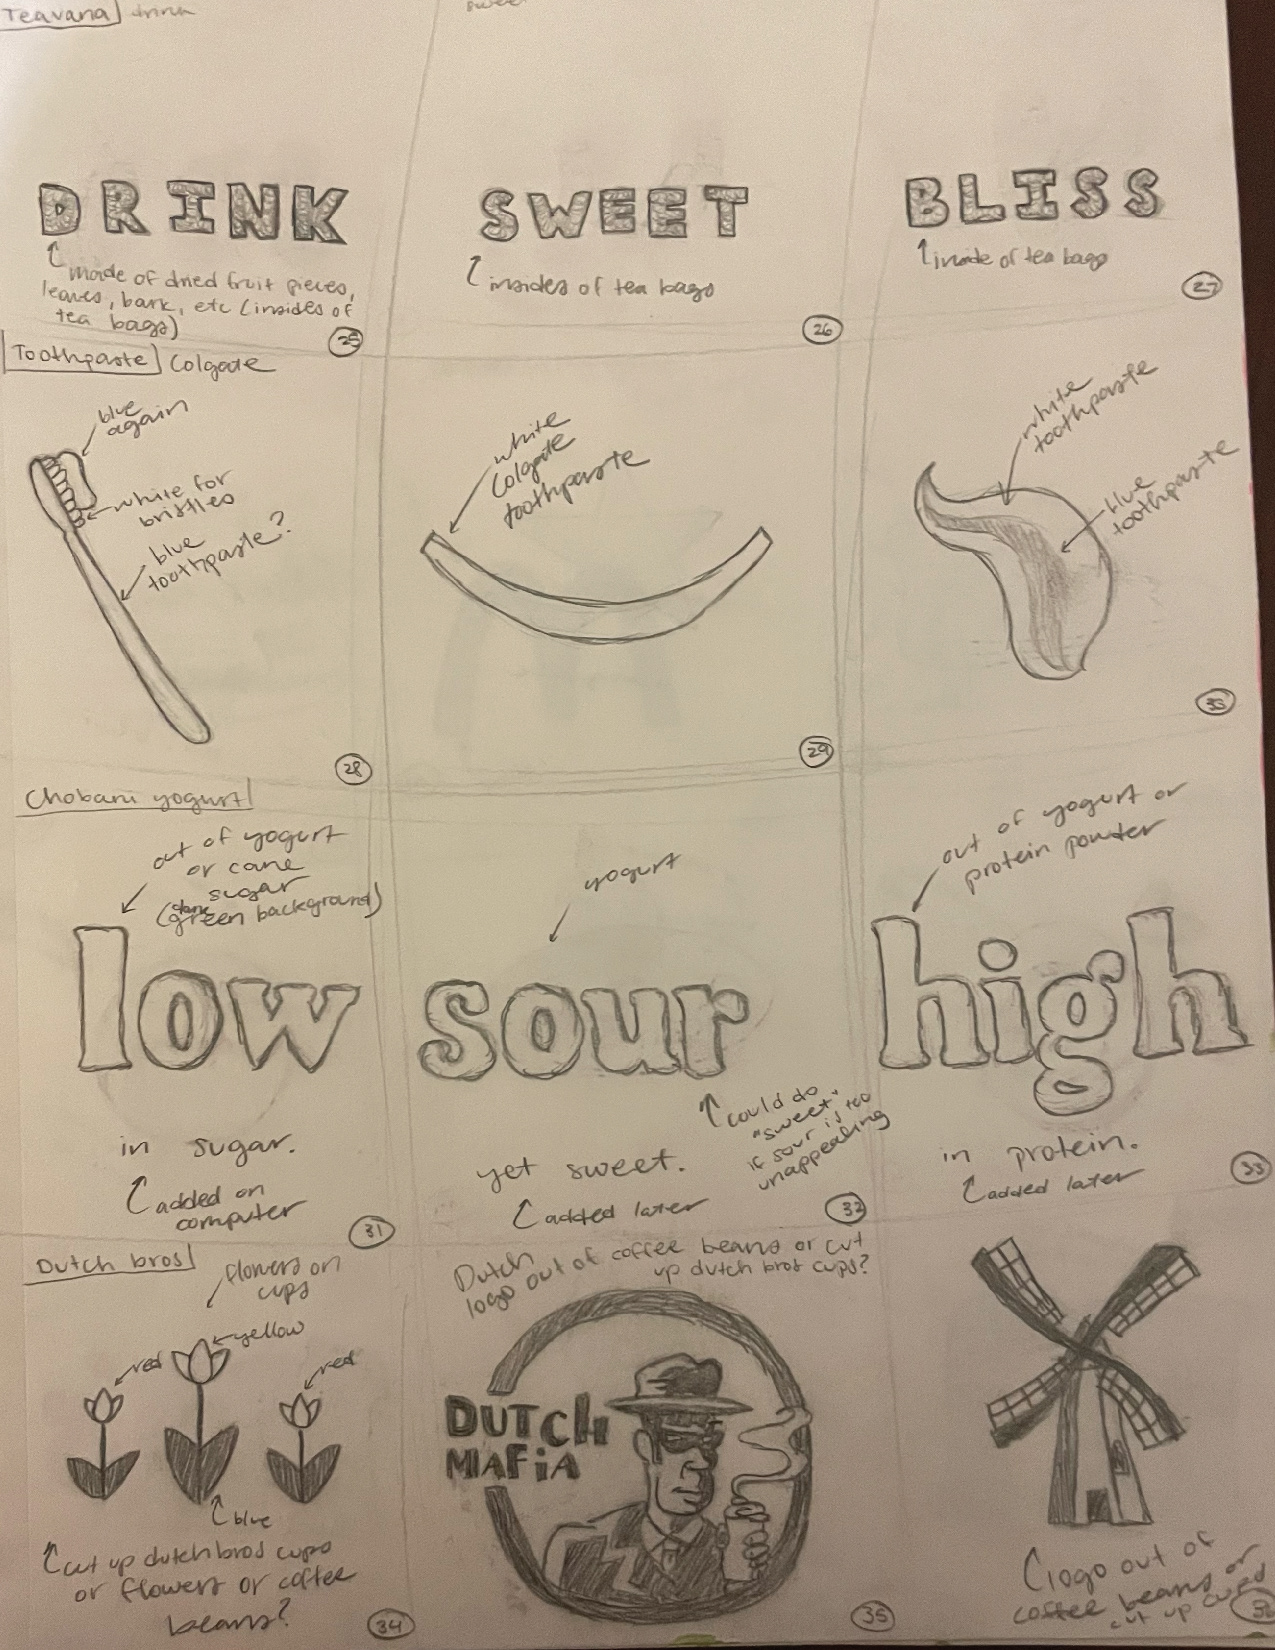 Teavana drink
sweet
DRINK
made of dried fruit pieces,
leaves, bark, etc (insides of
tea bags)
25
SWEET
insides of tea bags
26
BLISS
inside of tea bags
27
Toothpaste Colgate
blue
again
white for
bristles
blue
toothpaste?
28
white
Colgate
toothpaste
29
white
toothpaste
blue
toothpaste
30
Chobani yogurt
out of yogurt
or cane
sugar
(dark green background)
low
in sugar.
added on
computer
31
yogurt
sour
yet sweet.
added later
could do
"sweet"
if sour is too
unappealing
32
out of yogurt or
protein powder
high
in protein.
added later
33
Dutch bros
flowers on
cups
red
yellow
red
blue
cut up dutch bros cups
or flowers or coffee
beans?
34
Dutch
logo out of coffee beans or cut
up dutch bros cups?
DUTCH
MAFIA
35
logo out of
coffee beans or
cut up cups
36